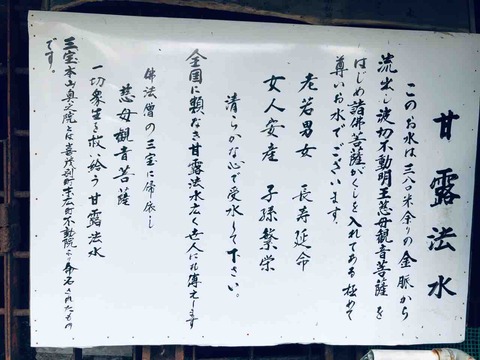 甘露法水
このお水は三八〇米余りの金脈から
流出し波切不動明王慈母観音菩薩を
はじめ諸佛菩薩がくしを入れてある極めて
尊いお水でございます。
老若男女 長寿延命
女人安産 子孫繁栄
清らかな心で受水して下さい。
全国に類なき甘露法水広く世人にも傳えします
佛法僧の三宝に帰依し
慈母観音菩薩
一切衆生を救い給う 甘露法水
三宝本山奥之院とは喜茂別町字広町不動院より命名されたもの
です。